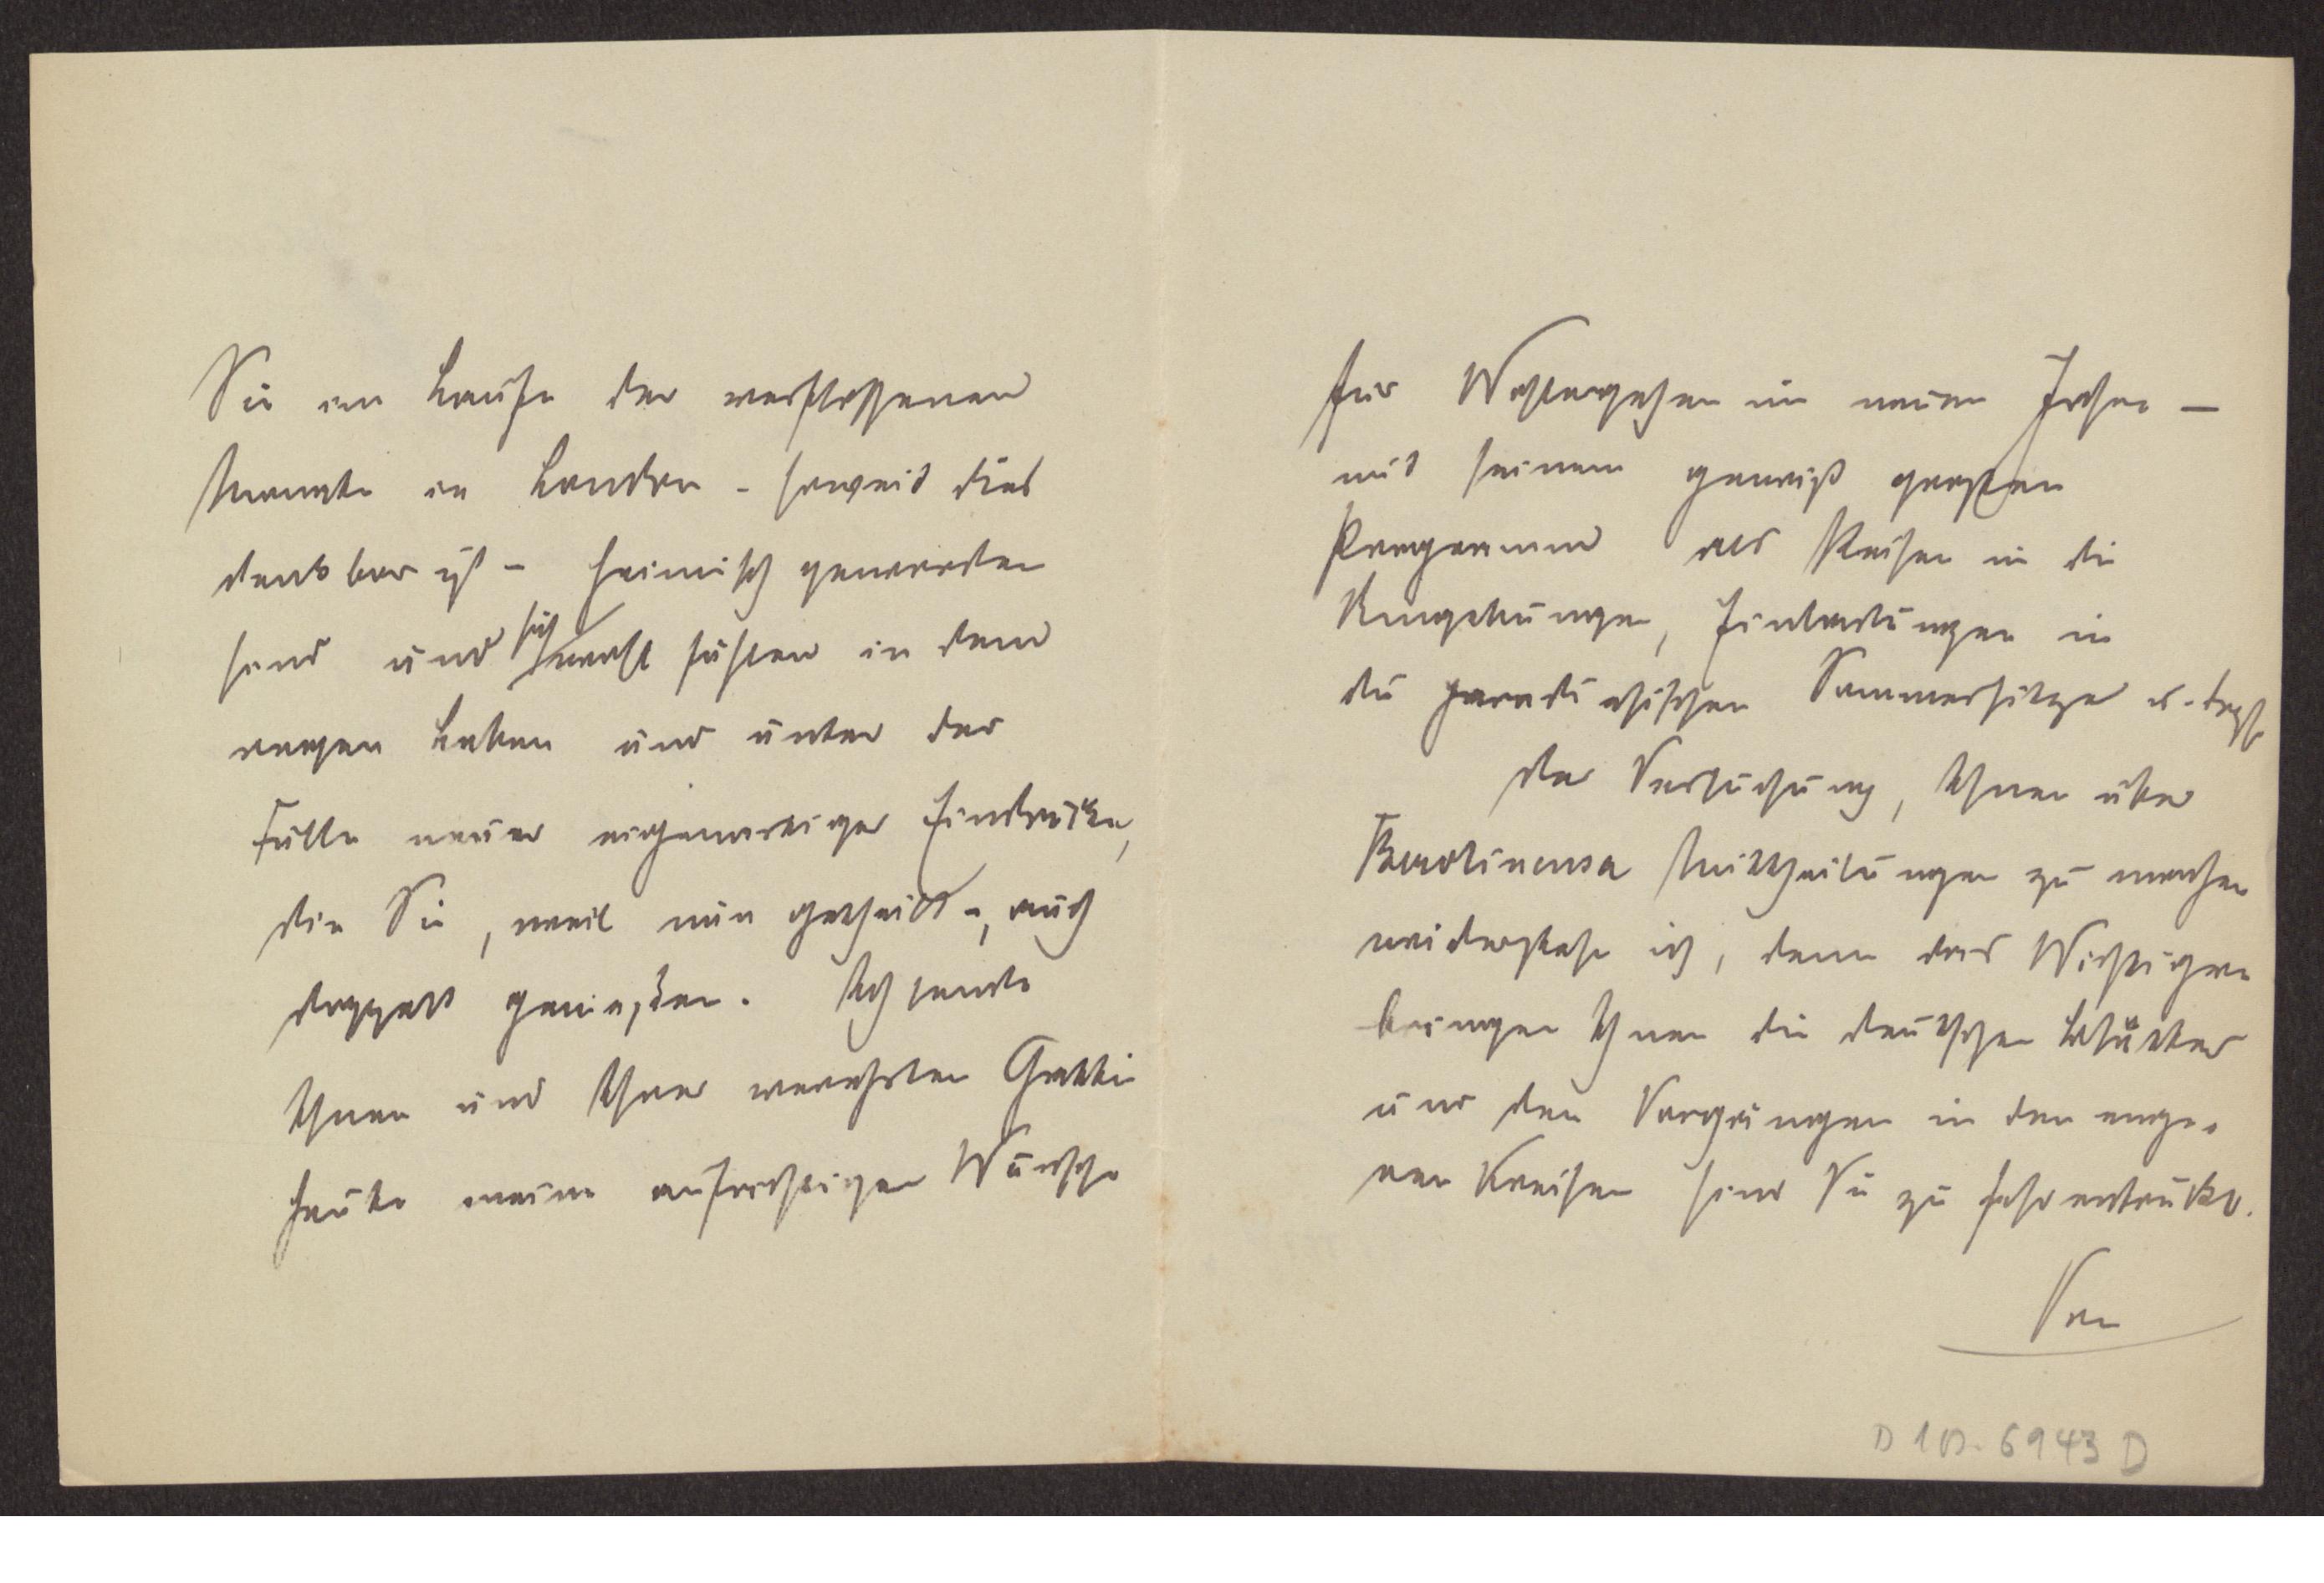 Sie im Laufe der verflossenen
Monate in London - soweit dies
denkbar ist - heimisch geworden
sind und sich wohl fühlen in dem
regen Leben und unter der
Fülle neuer eigenartiger Eindrücke,
die Sie, weil nun getheilt -, auch
doppelt genießen. Ich sende
Ihnen und Ihrer verehrten Gattin
heute meine aufrichtigen Wünsche
für Wohlergehen im neuen Jahre -
mit seinem gewiß großen
Programm als Reisen in die
Umgebungen, Einladungen in
die paradiesischen Sommersitze u. drgl.
Der Versuchung, Ihnen über
Berolinensia Mittheilungen zu machen
widerstehe ich, denn das Wichtigere
bringen Ihnen die deutschen Blätter
und den Vorgängen in den enge-
ren Kreisen sind Sie zu sehr entrückt.
Von
D 10. 6943 D